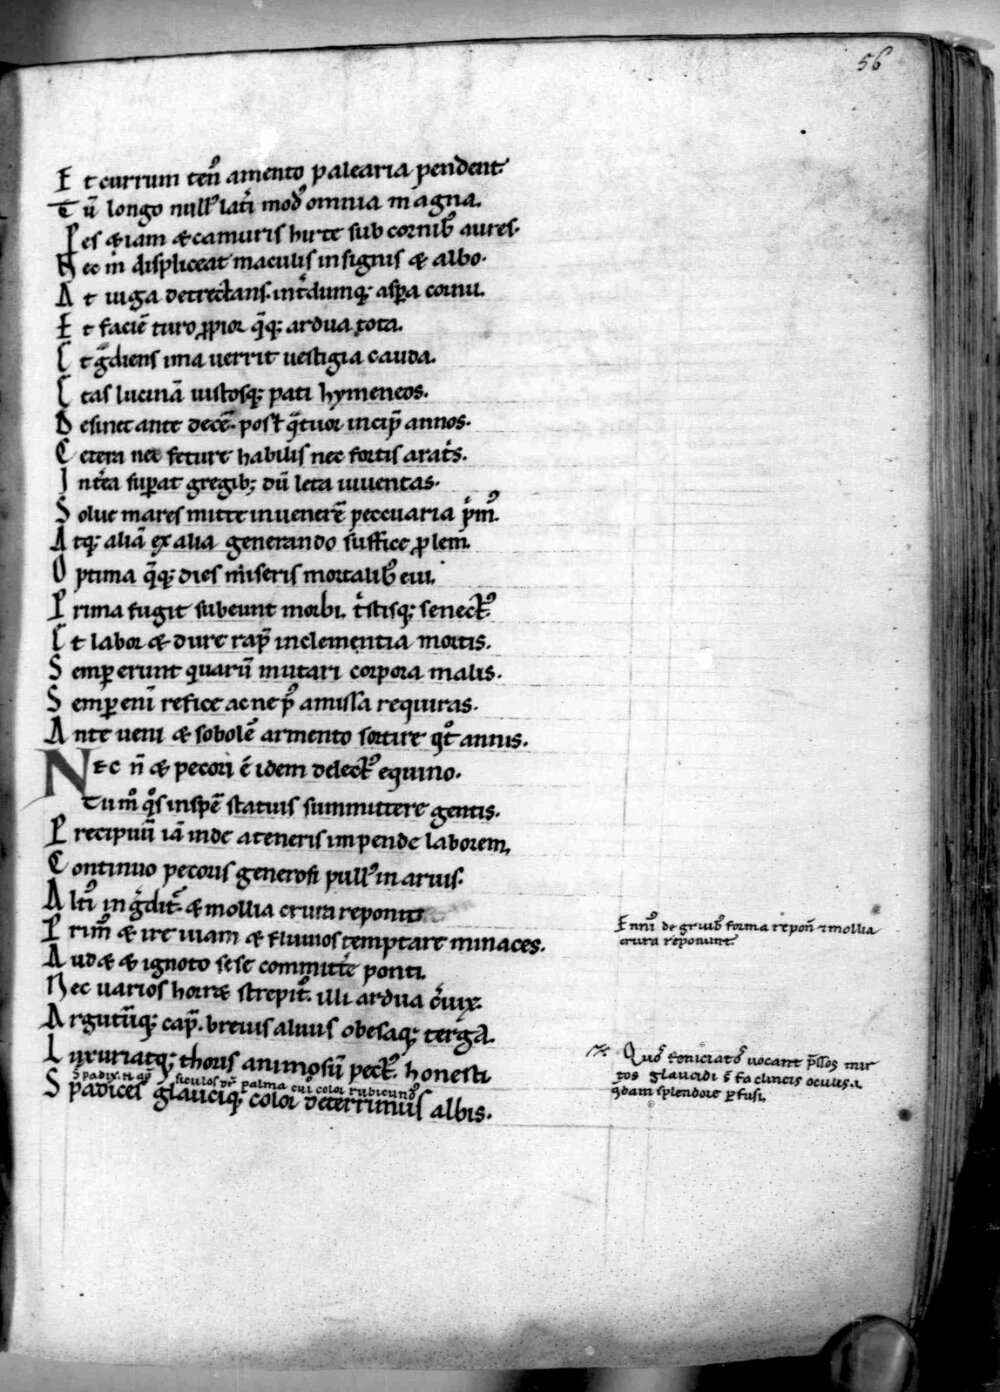 56
Et currum ten᷒ amento palearia pendent.
Tū longo null᷒ lat̾i mod᷒ omnia magna.
Pes & iam & camuris hirte sub cornib᷒ aures.
Nec m̄ displiceat maculis insignis & albo.
At iuga detrectans. int̾dumq; asp̱a cornu.
Et faciē turo ꝓpior q̄q; ardua tota.
Et g̾diens ima uerrit uestigia cauda.
Etas lucinā iustosq; pati hymeneos.
Desinet ante decē. post q̄tuor incip̄ annos.
Cetera nec feture habilis nec fortis arat̾s.
Int̾ea sup̱at gregib; dū leta iuuentas.
Solue mares mitte in uenerē peccuaria p̾m᷒.
Atq; aliā ex alia generando suffice ꝓlem.
Optima q̄q; dies miseris mortalib᷒ eui.
Prima fugit subeunt morbi. t̾stisq; senect᷒.
Et labor & dure rap̄ inclementia mortis.
Semp̱ erunt quarū mutari corpora malis.
Semp̱ enī refice ac ne p᷒ amissa requiras.
Ante ueni & sobolē armento sortire q̄t annis.
Nec n̄ & pecori ē idem delect᷒ equino.
Tu m᷒ q᷒s in spē statuis summittere gentis.
Precipuū iā inde a teneris impende laborem,
Continuo pecoris generosi pull᷒ in aruis.
Alti᷒ in g̾dit᷒. & mollia crura reponit
Prim᷒ & ire uiam & fluuios temptare minaces.
Aud& & ignoto sese committ̾e ponti.
Nec uarios horr& strepit᷒. illi ardua c̾uix.
Argutūq; cap̄. breuis aluus obesaq; terga.
Luxuriatq; thoris animosū pect᷒. honesti
Spadices glaucique; color deterrimus albis.
Enni᷒ de gruib᷒ forma repon̄ & mollia
crura reponunt᷒
Quos feniciatos uocant p̄ssos mir
tos glaucidi s̄ fa clineis oculis &
q̄dam splendore p̱fusi.